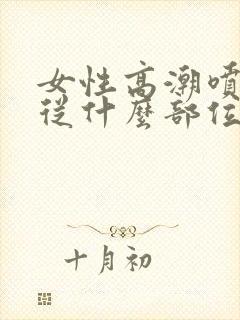 女性高潮噴
從什麼部位
十月初